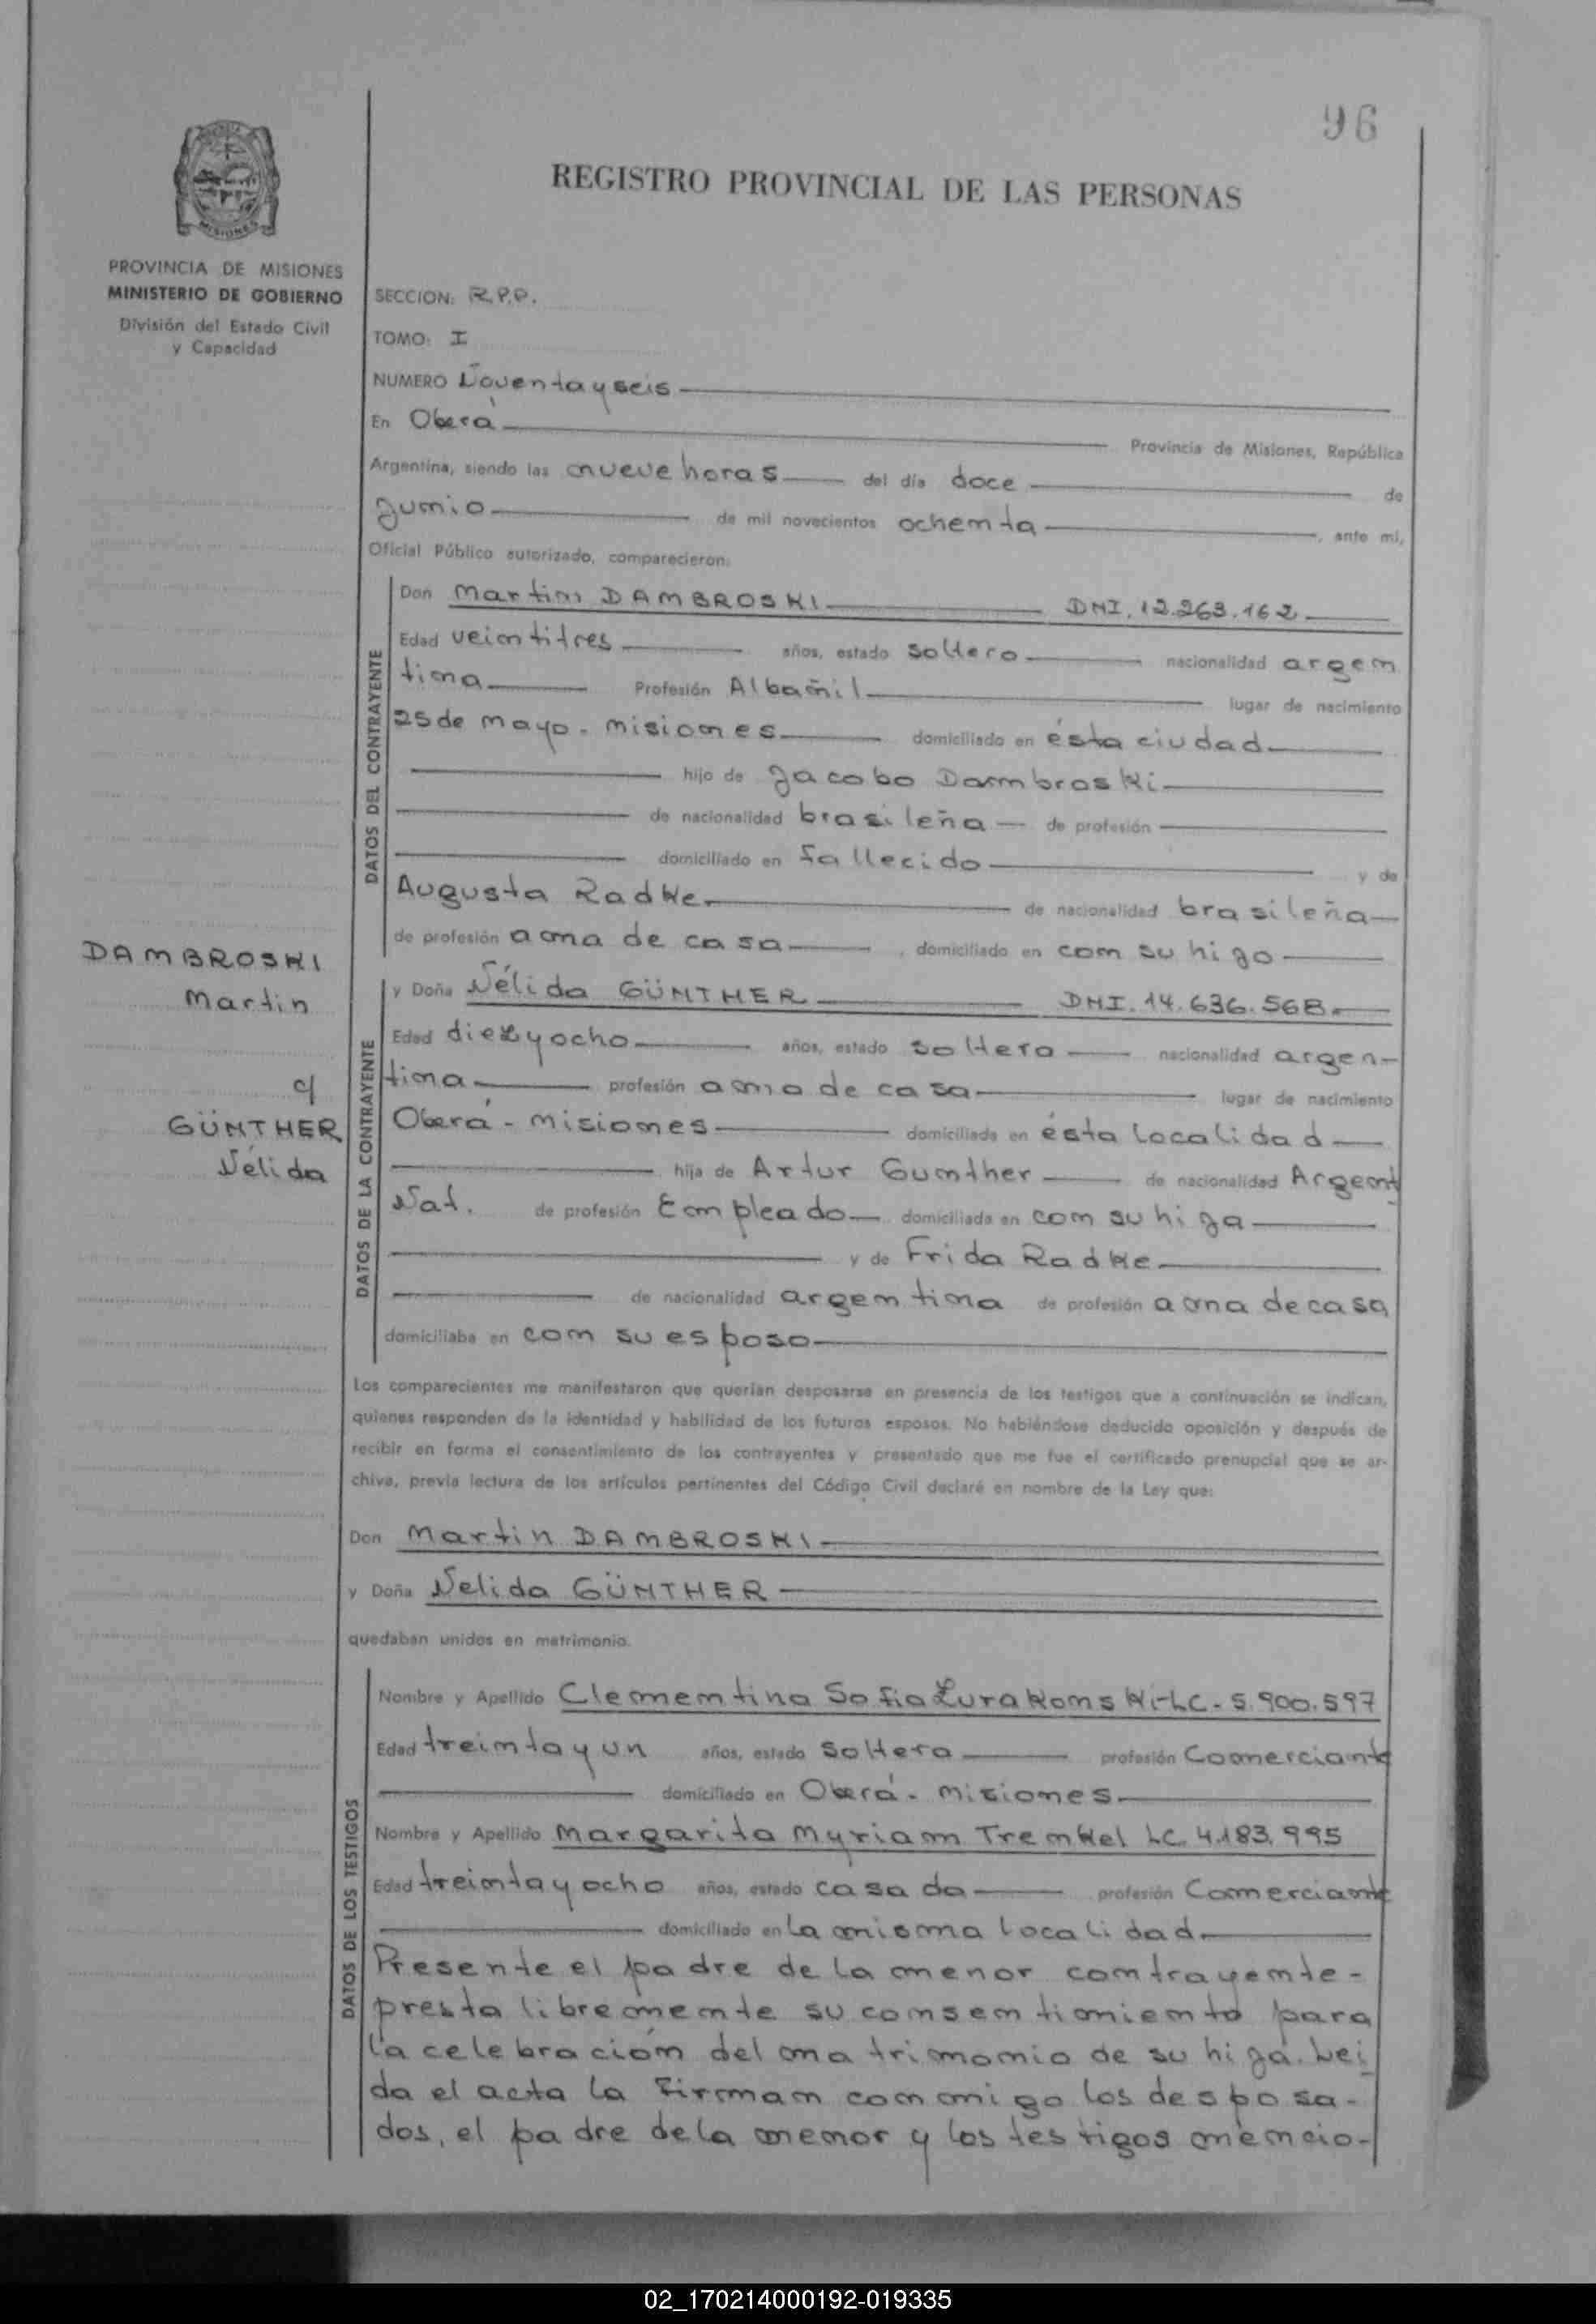 96
REGISTRO PROVINCIAL DE LAS PERSONAS
PROVINCIA DE MISIONES
MINISTERIO DE GOBIERNO
División del Estado Civil
y Capacidad
SECCION: R.P.P.
TOMO: I
NUMERO Noventa y seis
En Oberá Provincia de Misiones, República
Argentina, siendo las nueve horas del día doce de
Junio de mil novecientos ochenta, ante mí,
Oficial Público autorizado, comparecieron:
DATOS DEL CONTRAYENTE
Don Martin DAMBROSKI DNI. 12.263.162
Edad veintitres años, estado soltero nacionalidad argen
tina Profesión Albañil lugar de nacimiento
25 de mayo - misiones domiciliado en ésta ciudad
hijo de Jacobo Dambroski
de nacionalidad brasileña de profesión
domiciliado en fallecido y de
Augusta Radke de nacionalidad brasileña
de profesión ama de casa, domiciliado en con su hijo
DAMBROSKI
Martin
c/
GÜNTHER
Nélida
DATOS DE LA CONTRAYENTE
y Doña Nélida GÜNTHER DNI. 14.636.568
Edad diezyocho años, estado soltero nacionalidad argen-
tina profesión ama de casa lugar de nacimiento
Oberá - misiones domiciliada en ésta localidad
hija de Artur Gunther de nacionalidad Argent
Nat. de profesión Empleado domiciliada en con su hija
y de Frida Radke
de nacionalidad argentina de profesión ama de casa
domiciliaba en con su esposo
Los comparecientes me manifestaron que querían desposarse en presencia de los testigos que a continuación se indican,
quienes responden de la identidad y habilidad de los futuros esposos. No habiéndose deducido oposición y después de
recibir en forma el consentimiento de los contrayentes y presentado que me fue el certificado prenupcial que se ar-
chiva, previa lectura de los artículos pertinentes del Código Civil declaré en nombre de la Ley que:
Don Martin DAMBROSKI
y Doña Nelida GÜNTHER
quedaban unidos en matrimonio.
DATOS DE LOS TESTIGOS
Nombre y Apellido Clementina Sofia Zurakonski-LC-5.900.597
Edad treinta y un años, estado soltera profesión Comerciante
domiciliado en Oberá - misiones
Nombre y Apellido Margarita Myriam Trenkel LC. 4.183.995
Edad treinta y ocho años, estado casada profesión Comerciante
domiciliado en la misma localidad
Presente el padre de la menor contrayente-
presta libremente su consentimiento para
la celebración del matrimonio de su hija. Lei
da el acta la firman conmigo los desposa-
dos, el padre de la menor y los testigos mencio-
02_170214000192-019335